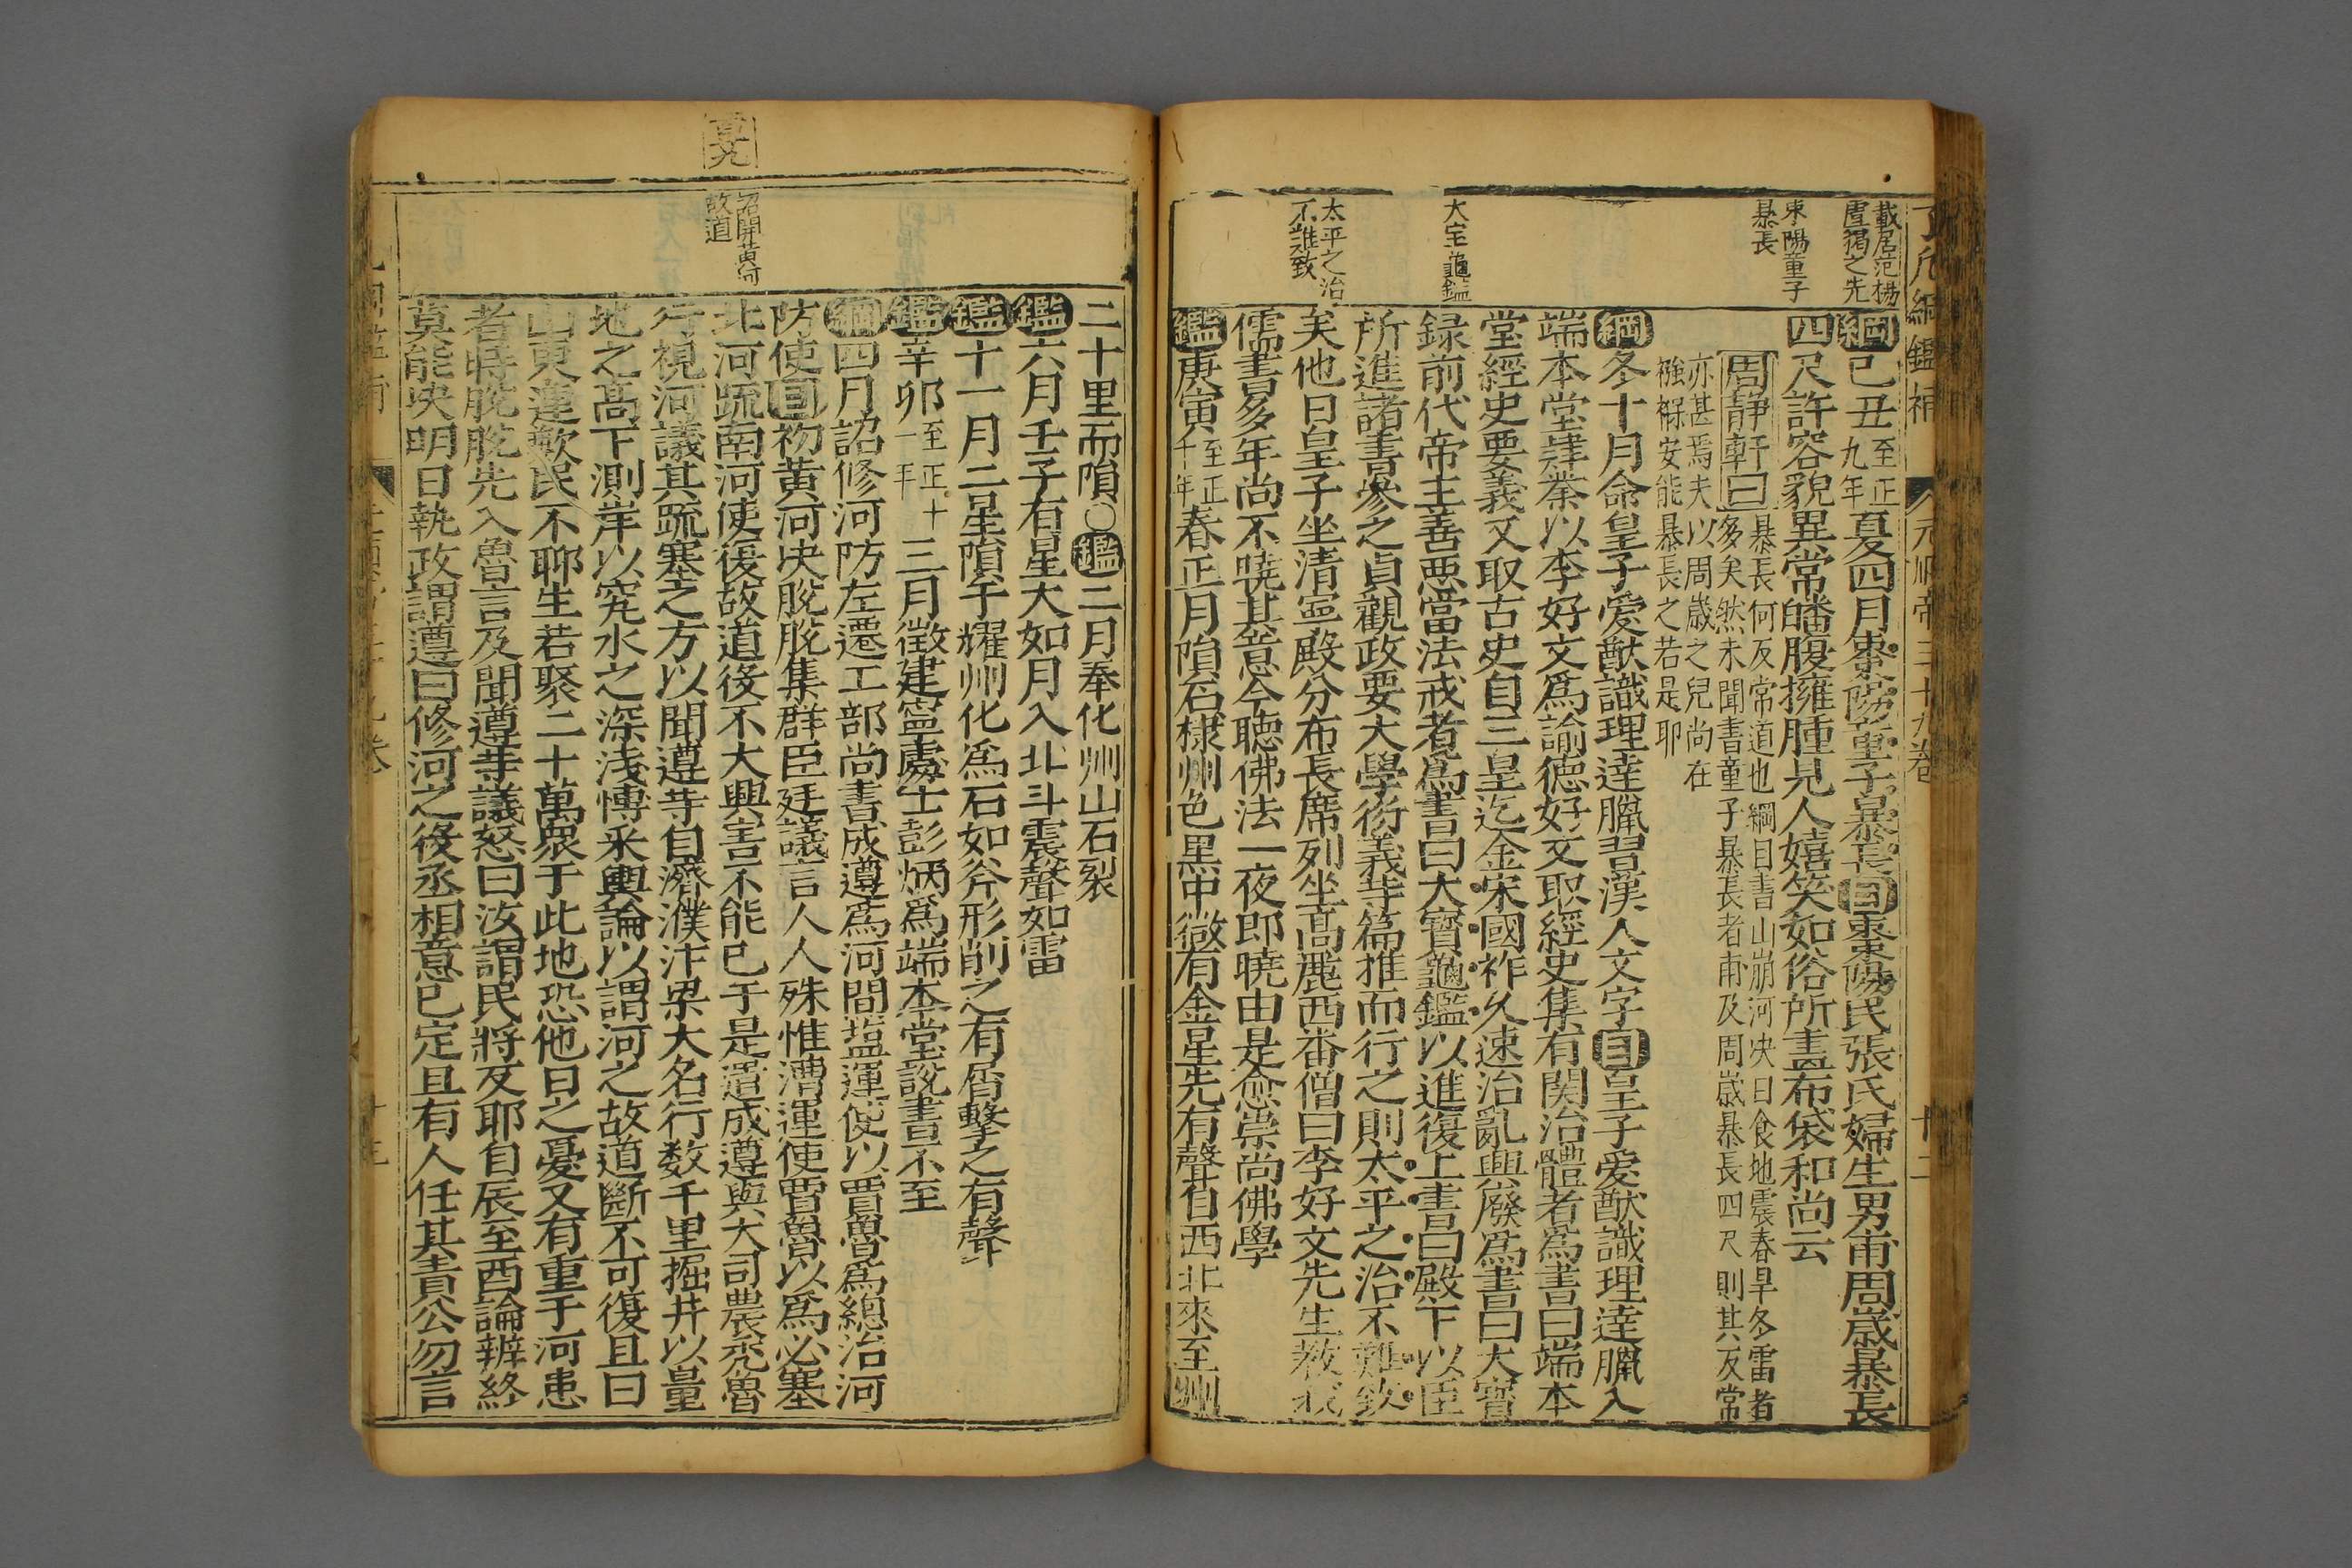 了凡綱鑑補
元順帝三十九卷
十二
載居范楊
盧獨之先
東陽童子
暴長
大宝龜鑑
太平之治
不难致
綱己丑至正九年夏四月棗陽童子暴長目棗陽民張氏婦生男甫周歲暴長
四尺許容貌異常皤腹擁腫見人嬉笑如俗所畫布袋和尚云
周靜軒曰暴長何反常道也綱目書山崩河决日食地震春旱冬雷者
多矣然未聞書童子暴長者甫及周歲暴長四尺則其反常
亦甚焉夫以周歲之兒尚在
襁褓安能暴長之若是耶
綱冬十月命皇子愛猷識理達臘習漢人文字目皇子愛猷識理達臘入
端本堂肄業以李好文爲諭德好文取經史集有関治體者爲書曰端本
堂經史要義又取古史自三皇迄金宋國祚久速治亂興廢爲書曰大寶
録前代帝王善悪當法戒者爲書曰大寳龜鑑以進復上書曰殿下以臣
所進諸書參之貞觀政要大學衍義等篇推而行之則太平之治不難致
矣他日皇子坐清寧殿分布長席列坐高麗西番僧曰李好文先生教我
儒書多年尚不曉其意今聴佛法一夜即曉由是愈崇尚佛學
鑑庚寅至正十年春正月隕石棣州色黒中微有金星先有聲自西北來至州
二十里而隕○鑑二月奉化州山石裂
鑑六月壬子有星大如月入北斗震聲如雷
鑑十一月二星隕于耀州化爲石如斧形削之有屑擊之有聲
鑑辛卯至正十一年三月徵建寧處士彭炳爲端本堂說書不至
綱四月詔修河防左遷工部尚書成遵爲河間塩運使以賈魯爲總治河
防使目初黄河决脱脱集群臣廷議言人人殊惟漕運使賈魯以爲必塞
北河疏南河使復故道役不大興害不能已于是遣成遵與大司農禿魯
行視河議其疏塞之方以聞遵等自濟濮汴梁大名行数千里掘井以量
地之高下測岸以究水之深浅博采輿論以謂河之故道斷不可復且曰
山東連歉民不聊生若聚二十萬衆于此地恐他日之憂又有重于河患
者時脱脱先入魯言及聞遵等議怒曰汝謂民將反耶自辰至酉論辨終
莫能决明日執政謂遵曰修河之役丞相意已定且有人任其責公勿言
詔開黄河
故道